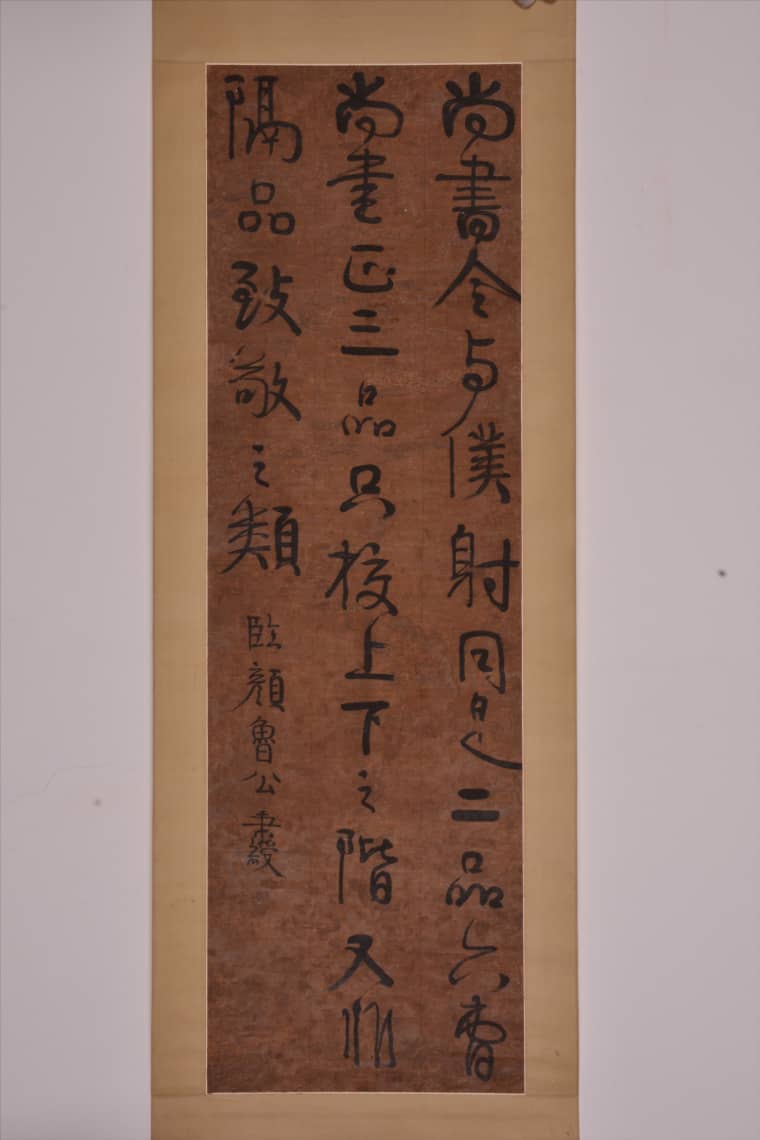 尚書令与僕射同是二品六曹
尚書正三品只校上下之階又非
隔品致敬之類
臨顏魯公秉綬